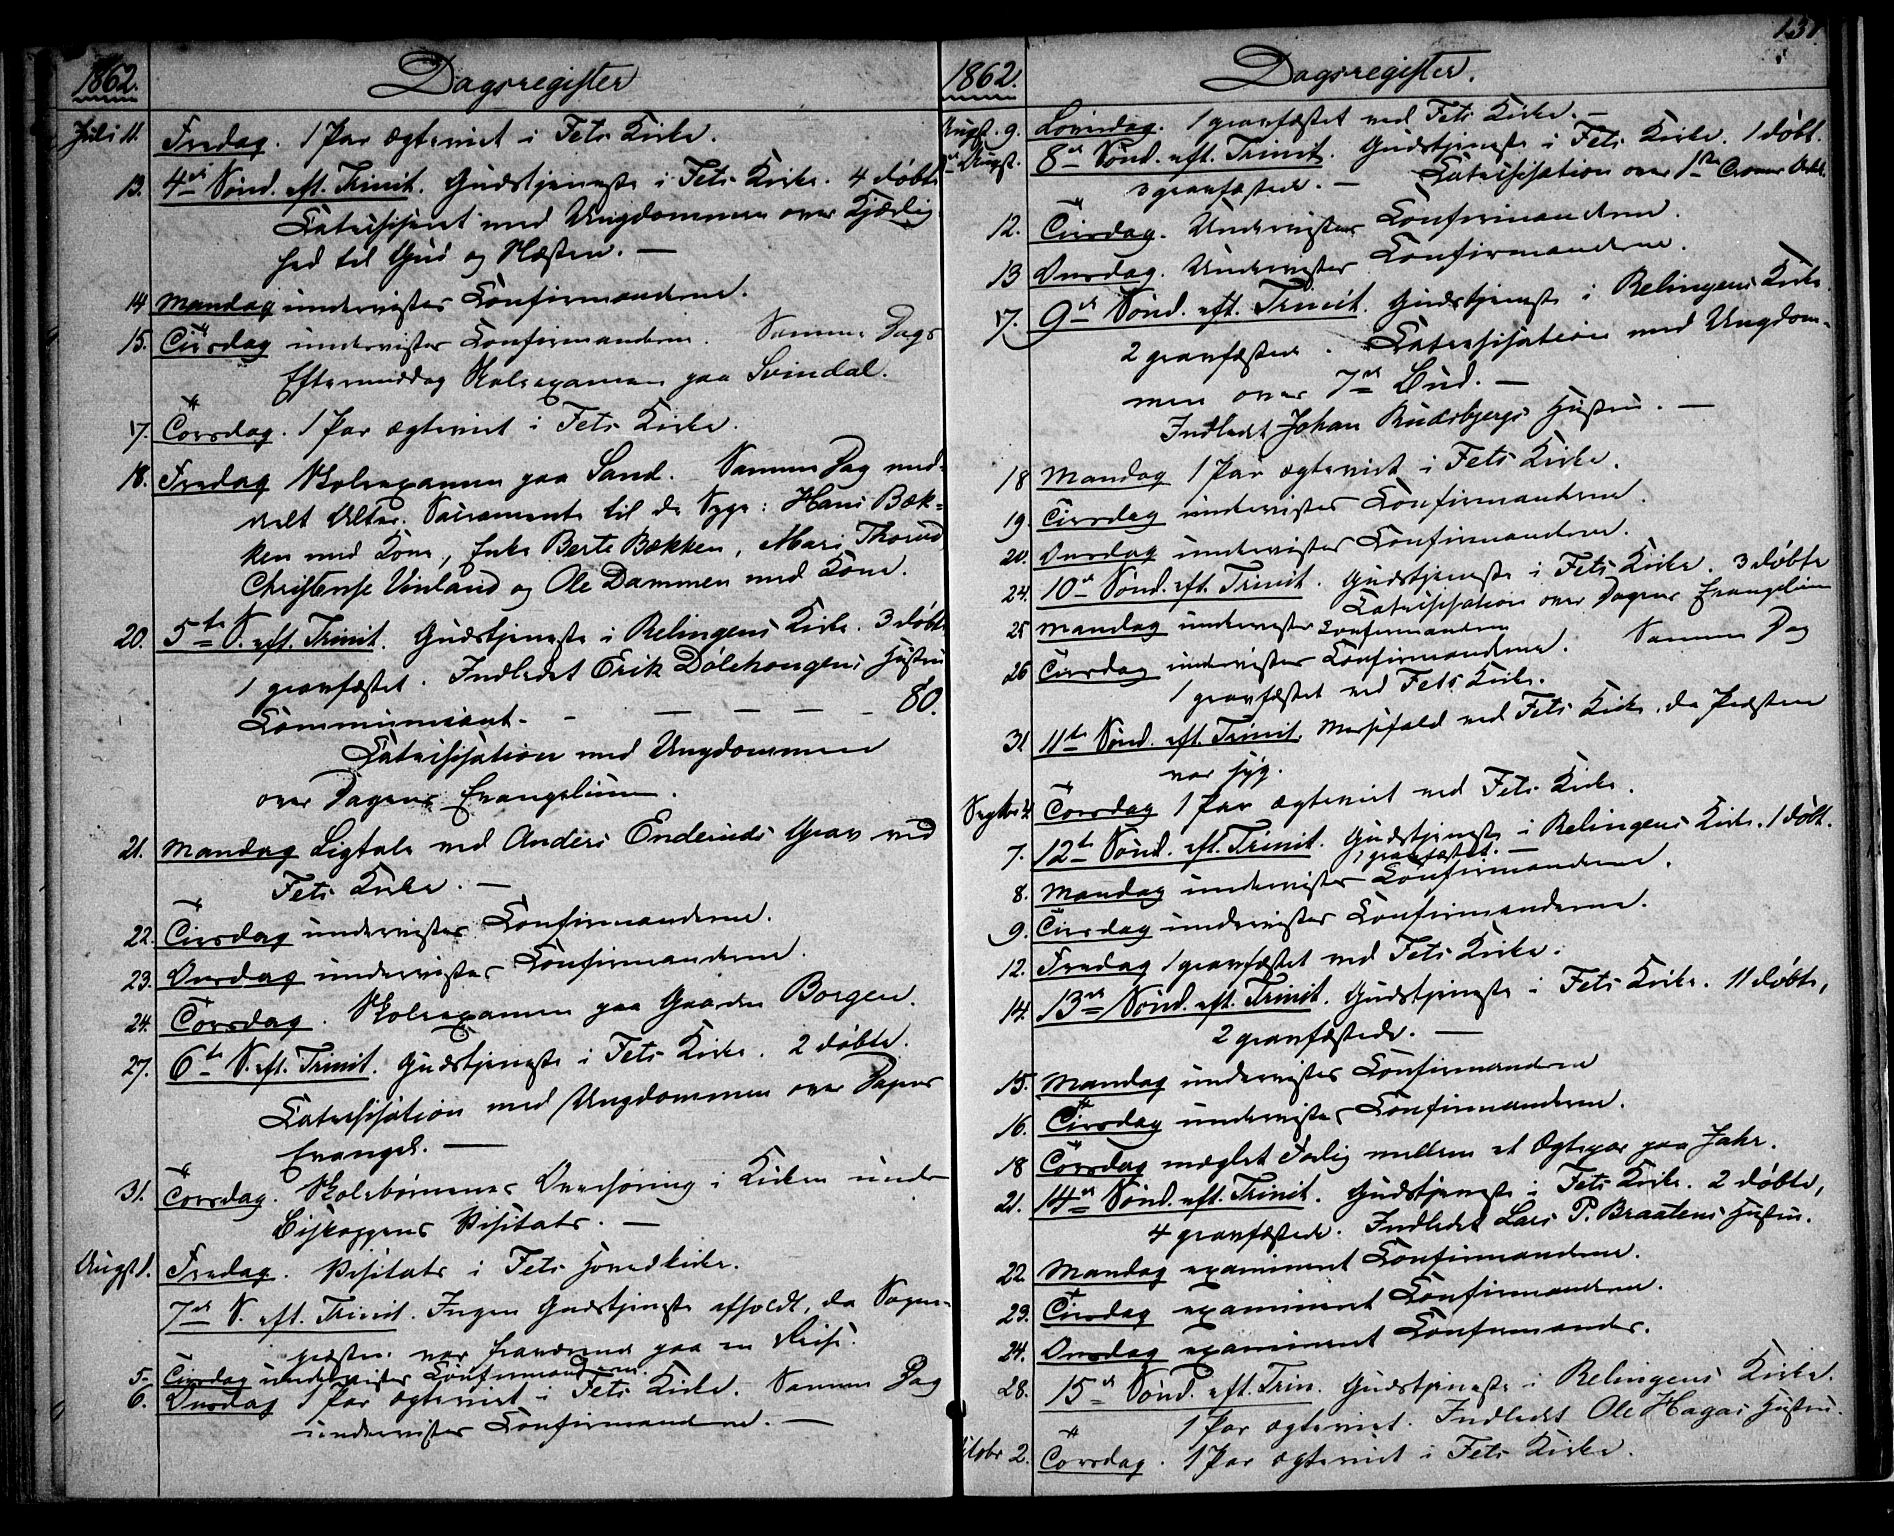 1862. Dagsregister
Juli 11. Fredag. 1 Par ægteviet i Fets Kirke.
13. 4de Sønd. eft. Trinit. Gudstjeneste i Fets Kirke. 4 døbte
Catechiseret med Ungdommen over Kjærlig-
hed til Gud og Næsten. —
14 Mandag undervistes Confirmanderne.
15. Tirsdag undervistes Confirmanderne. Samme Dags
Eftermiddag Skoleexamen paa Svindal.
17. Torsdag. 1 Par ægteviet i Fets Kirke.
18. Fredag Skoleexamen paa Sand. Samme Dag med-
delt Altar. Sacramente til de Syge: Hans Bæk-
ken med Kone, Enke Berte Bækken, Mari Thorud
Christense Vinland og Ole Dammen med Kone.
20. 5te S. eft. Trinit. Gudstjeneste i Relingens Kirke. 3 døbte
1 gravfæstet. Indledet Erik Dølehougens Hustru
Communicant. - — — — - 80.
Catechisation med Ungdommen
over Dagens Evangelium.
21. Mandag Ligtale ved Anders Enderuds Grav ved
Fets Kirke. —
22. Tirsdag undervistes Confirmanderne.
23. Onsdag undervistes Confirmanderne.
24. Torsdag. Skoleexamen paa Gaarden Borgen.
27. 6te S. eft. Trinit. Gudstjeneste i Fets Kirke. 2 døbte.
Catechisation med Ungdommen over Dagens
Evangel. —
31. Torsdag. Skolebørnenes Overhøring i Kirken under
Biskoppens Visitats. —
Augst 1. Fredag. Visitats i Fets Hovedkirke.
7de S. eft. Trinit. Ingen Gudstjeneste afholdt, da Sogne-
præsten var fraværende paa en Reise.
5. Tirsdag undervistes Confirmanderne.
6. Onsdag 1 Par ægteviet i Fets Kirke. Samme Dag
undervistes Confirmanderne. —
131
1862. Dagsregister.
Augst. 9. Løverdag. 1 gravfæstet ved Fets Kirke. —
Augst. 8de Sønd. eft. Trinit. Gudstjeneste i Fets Kirke. 1 døbt.
3 gravfæstede. — Catechisation over 1ste Troens Artik.
12. Tirsdag. Undervistes Confirmanderne.
13 Onsdag. Undervistes Confirmanderne.
17. 9de Sønd. eft. Trinit. Gudstjeneste i Relingens Kirke.
2 gravfæstede. Catechisation med Ungdom-
men over 7de Bud. —
Indledet Johan Rudsbjergs Hustru. —
18 Mandag 1 Par ægteviet i Fets Kirke.
19. Tirsdag undervistes Confirmanderne.
20. Onsdag undervistes Confirmanderne.
24. 10de Sønd. eft. Trinit. Gudstjeneste i Fets Kirke. 3 døbte
Catechisation over Dagens Evangelium
25 Mandag undervistes Confirmanderne
26 Tirsdag undervistes Confirmanderne. Samme Dag
1 gravfæstet ved Fets Kirke.
31 11te Sønd. eft. Trinit. Messefald ved Fets Kirke, da Præsten
var syg.
Septbr 4. Torsdag 1 Par ægteviet ved Fets Kirke.
7. 12te Sønd. eft. Trinit. Gudstjeneste i Relingens Kirke. 1 døbt.
1 gravfæstet. —
8. Mandag undervistes Confirmanderne.
9. Tirsdag undervistes Confirmanderne.
12. Fredag 1 gravfæstet ved Fets Kirke.
14. 13de Sønd. eft. Trinit. Gudstjeneste i Fets Kirke. 11 døbte,
2 gravfæstede. —
15. Mandag undervistes Confirmanderne
16. Tirsdag undervistes Confirmanderne.
18 Torsdag mæglet Forlig mellem et Ægtepar paa Jahr.
21. 14de Sønd. eft. Trinit. Gudstjeneste i Fets Kirke. 2 døbte,
4 gravfæstede. Indledet Lars P. Braatens Hustru.
22. Mandag examineret Confirmanderne.
23. Tirsdag examineret Confirmanderne.
24. Onsdag examineret Confirmander.
28. 15de Sønd. eft. Trin. Gudstjeneste i Relingens Kirke.
1 Par ægteviet. Indledet Ole Hagas Hustru.
Octobr 2. Torsdag. 1 Par ægteviet i Fets Kirke.